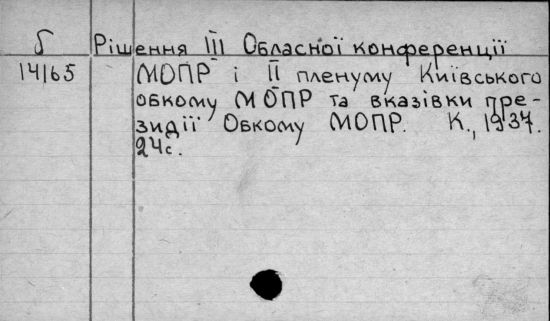 δ Рішення III Обласної конференції
14165 МОПР і II пленуму Київського
обкому МОПР та вказівки пре-
зидії Обкому МОПР. К., 1937.
24с.